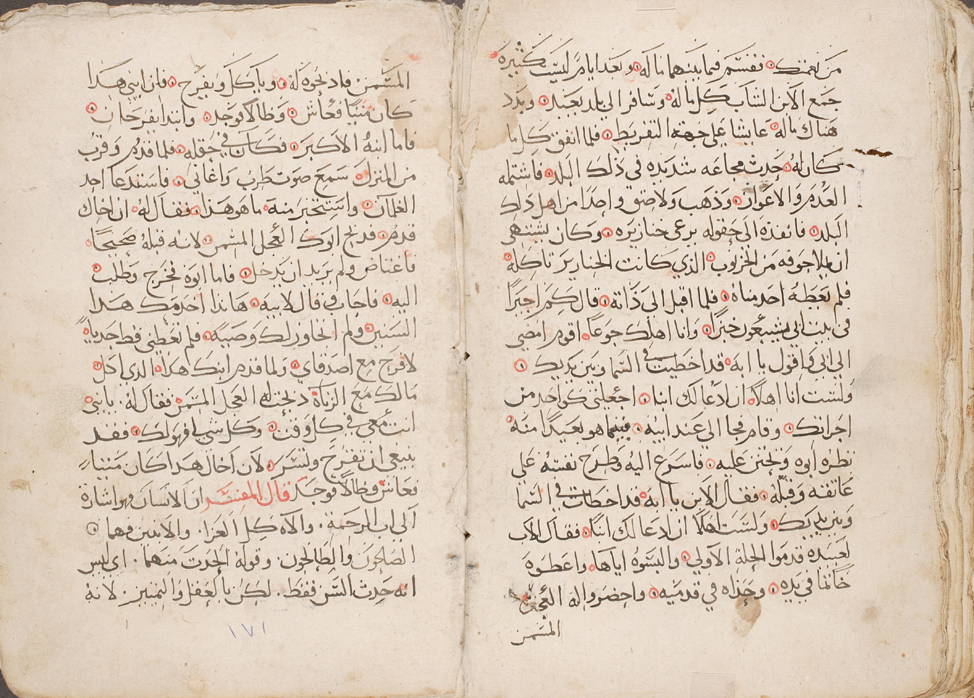 من نعمتك فقسم فيما بينهما ماله وبعد ايام ليست كثيره
جمع الابن الشاب كل ماله وسافر الى بلد بعيد وبدد
هناك ماله عايشا على جهة التفريط فلما انفق كل ما
كان له حدث مجاعه شديده في ذلك البلد فاشتمله
العدم والاعواز وذهب ولاصق واحدا من اهل ذلك
البلد فانفذه الى حقوله يرعى خنازيره وكان يشتهي
ان يملا جوفه من الخرنوب الذي كانت الخنازير تاكله
فلم يعطه احد مناه فلما اقبل الى ذاته قال كم اجيرا
في بيت ابي يشبعون خبزا وانا اهلك جوعا اقوم امضي
الى ابي واقول يا ابه قد اخطيت في السما وبين يديك
ولست انا اهلا ان ادعا لك ابنا اجعلني كواحد من
اجرائك وقام فجا الى عند ابيه فبينما هو بعيدا منه
نظره ابوه وتحنن عليه فاسرع اليه وطرح نفسه على
عاتقه وقبله فقال الابن يا ابه قد اخطات في السما
وبين يديك ولست اهلا ان ادعا لك ابنا فقال الاب
لعبيده قدموا الحلة الاولى والبسوه اياها واعطوه
خاتما في يده وحذاه في قدميه واحضروا له العجل
المسمن
المسمن فاذبحوه له وناكل ونفرح فان ابني هذا
كان ميتا فعاش وظالا فوجد وابتدا يفرحان
فاما ابنه الاكبر فكان في حقله فلما قدم وقرب
من المنزل سمع صوت طرب واغاني فاستدعا احد
الغلمان واستخبر منه ما هو هذا فقال له ان اخاك
قدم فذبح ابوك العجل المسمن لانه قبله صحيحا
فاغتاض ولم يريد ان يدخل فاما ابوه فخرج وطلب
اليه فاجاب وقال لابيه هاندا اخدمك هذا
السنين ولم اتجاوز لك وصية فلم تعطني قط جديا
لافرح مع اصدقاي ولما قدم ابنك هذا الذي اكل
مالك مع الزناة ذبحت له العجل المسمن فقال له يا بني
انت معي في كل وقت وكل شي لي فهو لك فقد
ينبغي ان نفرح ونسر لان اخاك هذا كان ميتا
فعاش وظالا فوجد قال المفسر ان الانسان هو اشارة
الى اب المرحمة والاه كل العزا والابنين فهما
الصالحون والطالحون وقوله الحدث منهما اي ليس
انه حدث السن فقط لكن بالعقل والتمييز لانه
١٧١